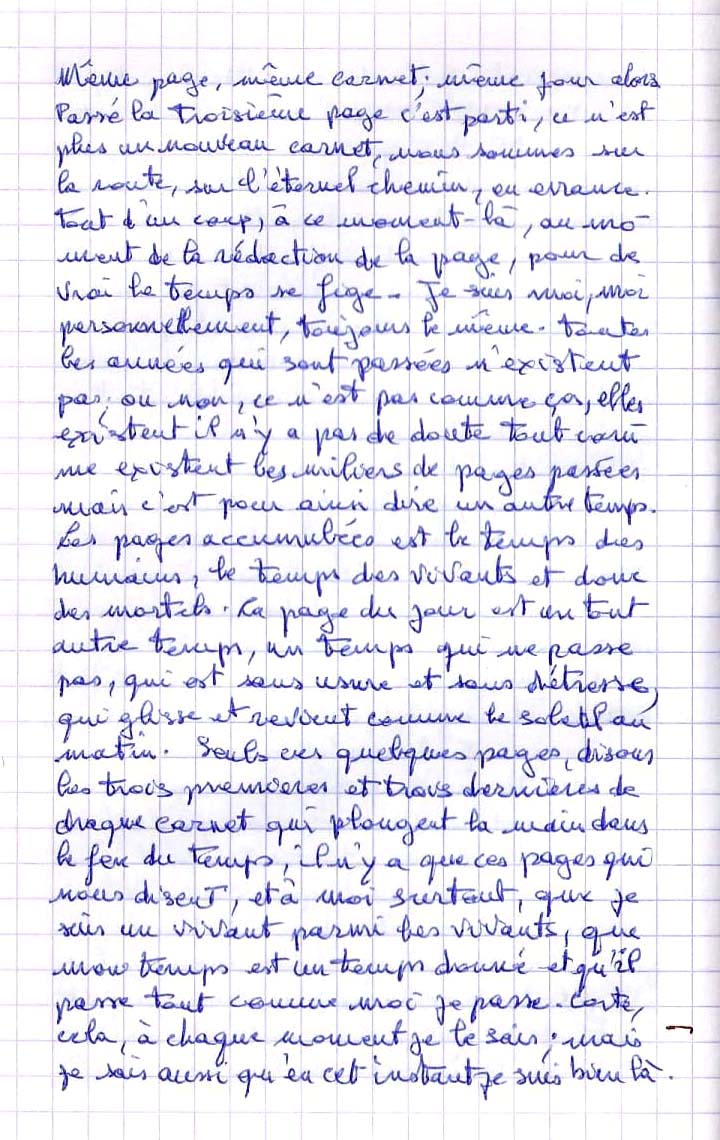 Même page, même carnet; même jour alors
Passé la troisième page c'est parti, ce n'est
plus un nouveau carnet, nous sommes sur
la route, sur l'éternel chemin, en errance.
Tout d'un coup, à ce moment-là, au mo-
ment de la rédaction de la page, pour de
vrai le temps se fige. Je suis moi, moi
personnellement, toujours le même. Toutes
les années qui sont passées n'existent
pas; ou non, ce n'est pas comme ça, elles
existent il n'y a pas de doute tout com
me existent les milliers de pages passées
mais c'est pour ainsi dire un autre temps.
Les pages accumulées est le temps des
humains, le temps des vivants et donc
des mortels. La page du jour est un tout
autre temps, un temps qui ne passe
pas, qui est sans usure et sans détresse,
qui glisse et revient comme le soleil au
matin. Seuls ces quelques pages, disons
les trois premières et trois dernières de
chaque carnet qui plongent la main dans
le feu du temps, il n'y a que ces pages qui
nous disent, et à moi surtout, que je
suis un vivant parmi les vivants, que
mon temps est un temps donné et qu'il
passe tout comme moi je passe. Certe,
cela, à chaque moment je le sais; mais
je sais aussi qu'en cet instant je suis bien là.